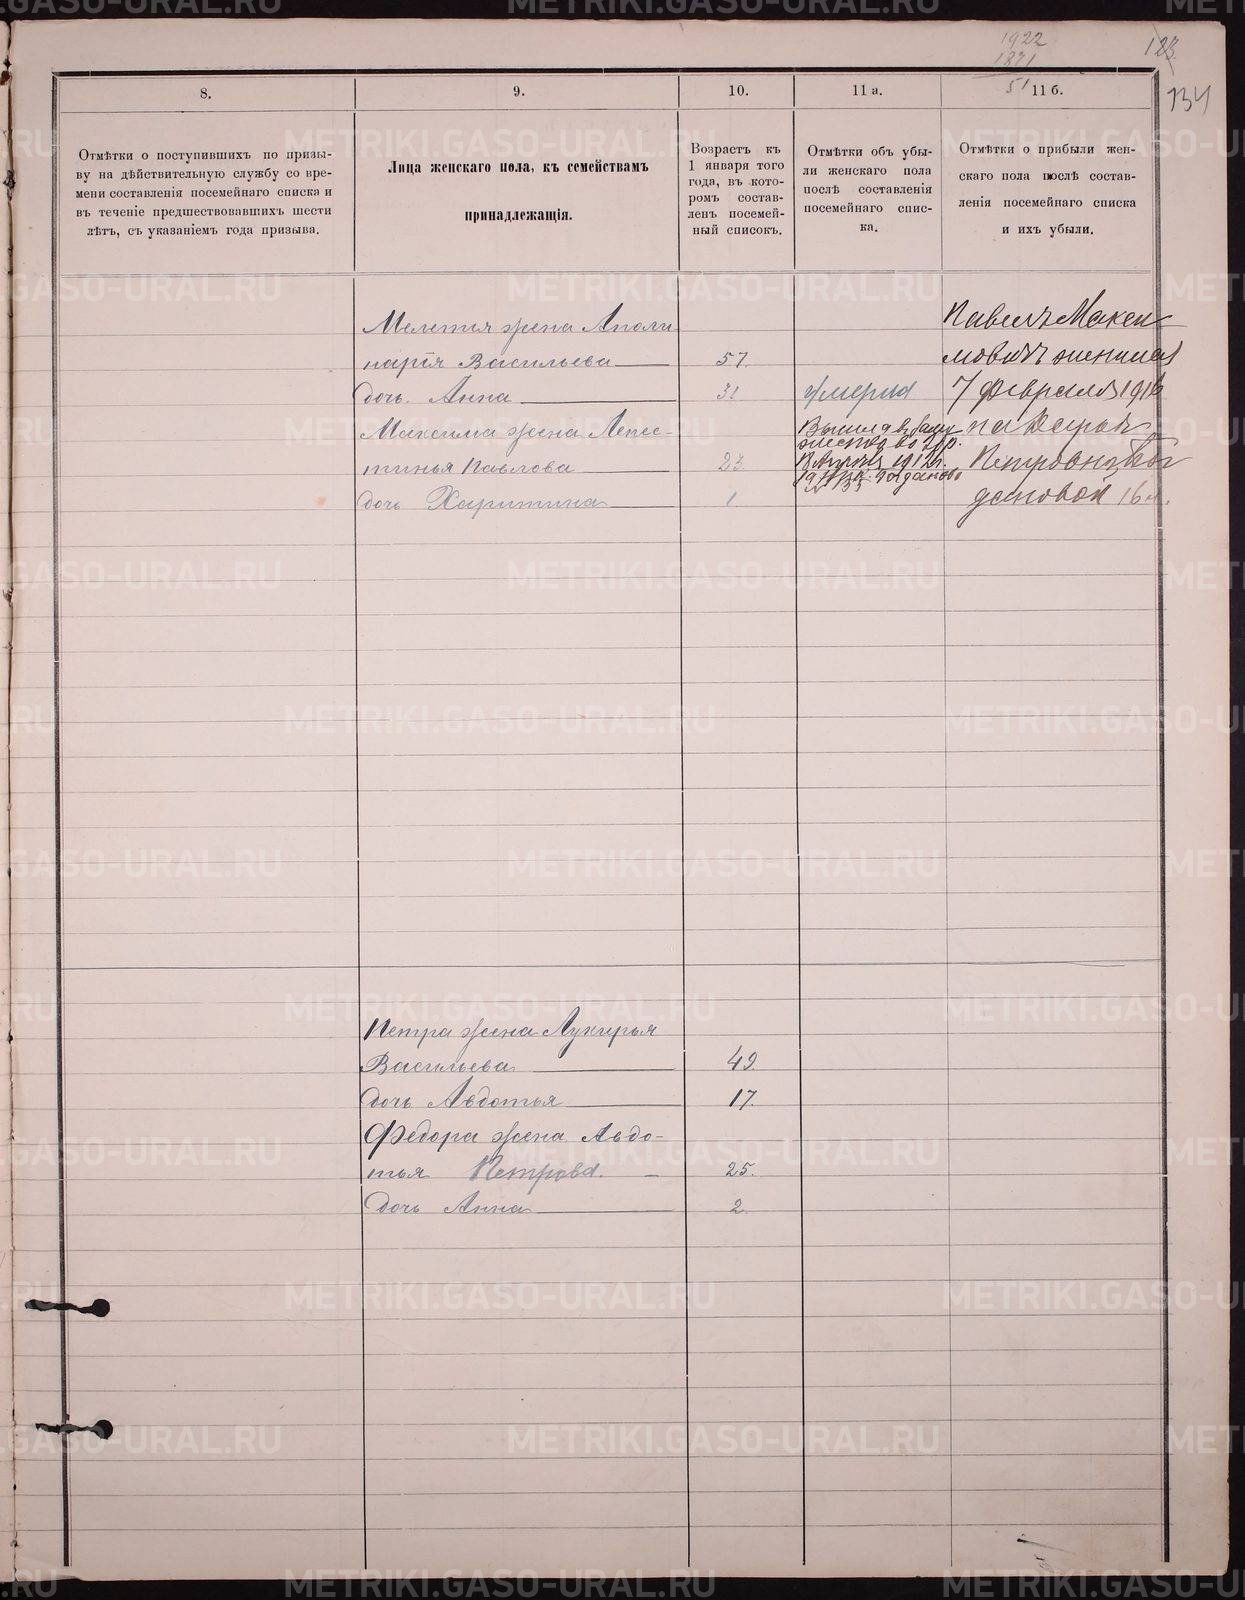 1922
1871
51
123
134
8.
9.
10.
11 а.
11 б.
Отмѣтки о поступившихъ по призы-
ву на дѣйствительную службу со вре-
мени составленія посемейнаго списка и
въ теченіе предшествовавшихъ шести
лѣтъ, съ указаніемъ года призыва.
Лица женскаго пола, къ семействамъ
принадлежащія.
Возрастъ къ
1 января того
года, въ кото-
ромъ состав-
ленъ посемей-
ный списокъ.
Отмѣтки объ убы-
ли женскаго пола
послѣ составленія
посемейнаго спис-
ка.
Отмѣтки о прибыли жен-
скаго пола послѣ состав-
ленія посемейнаго списка
и ихъ убыли.
Мелетія жена Аполи
нарія Васильева 57.
дочь Анна 31 умерла
Максима жена Лепес-
тинья Павлова 23.
дочь Харитина 1
Вышла въ заму
жество во 2 бр.
1912г.
Павелъ Макси
мовичъ женился
7 февраля 191
на
Петровнѣ Бог
дановой 16 л.
Петра жена Лукерья
Васильева 49.
дочь Авдотья 17.
Федора жена Авдо-
тья Петрова. 25.
дочь Анна 2.
METRIKI.GASO-URAL.RU